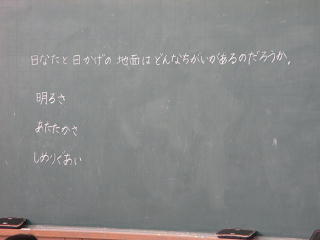 日なたと日かげの地面はどんなちがいがあるのだろうか。
明るさ
あたたかさ
しめりぐあい